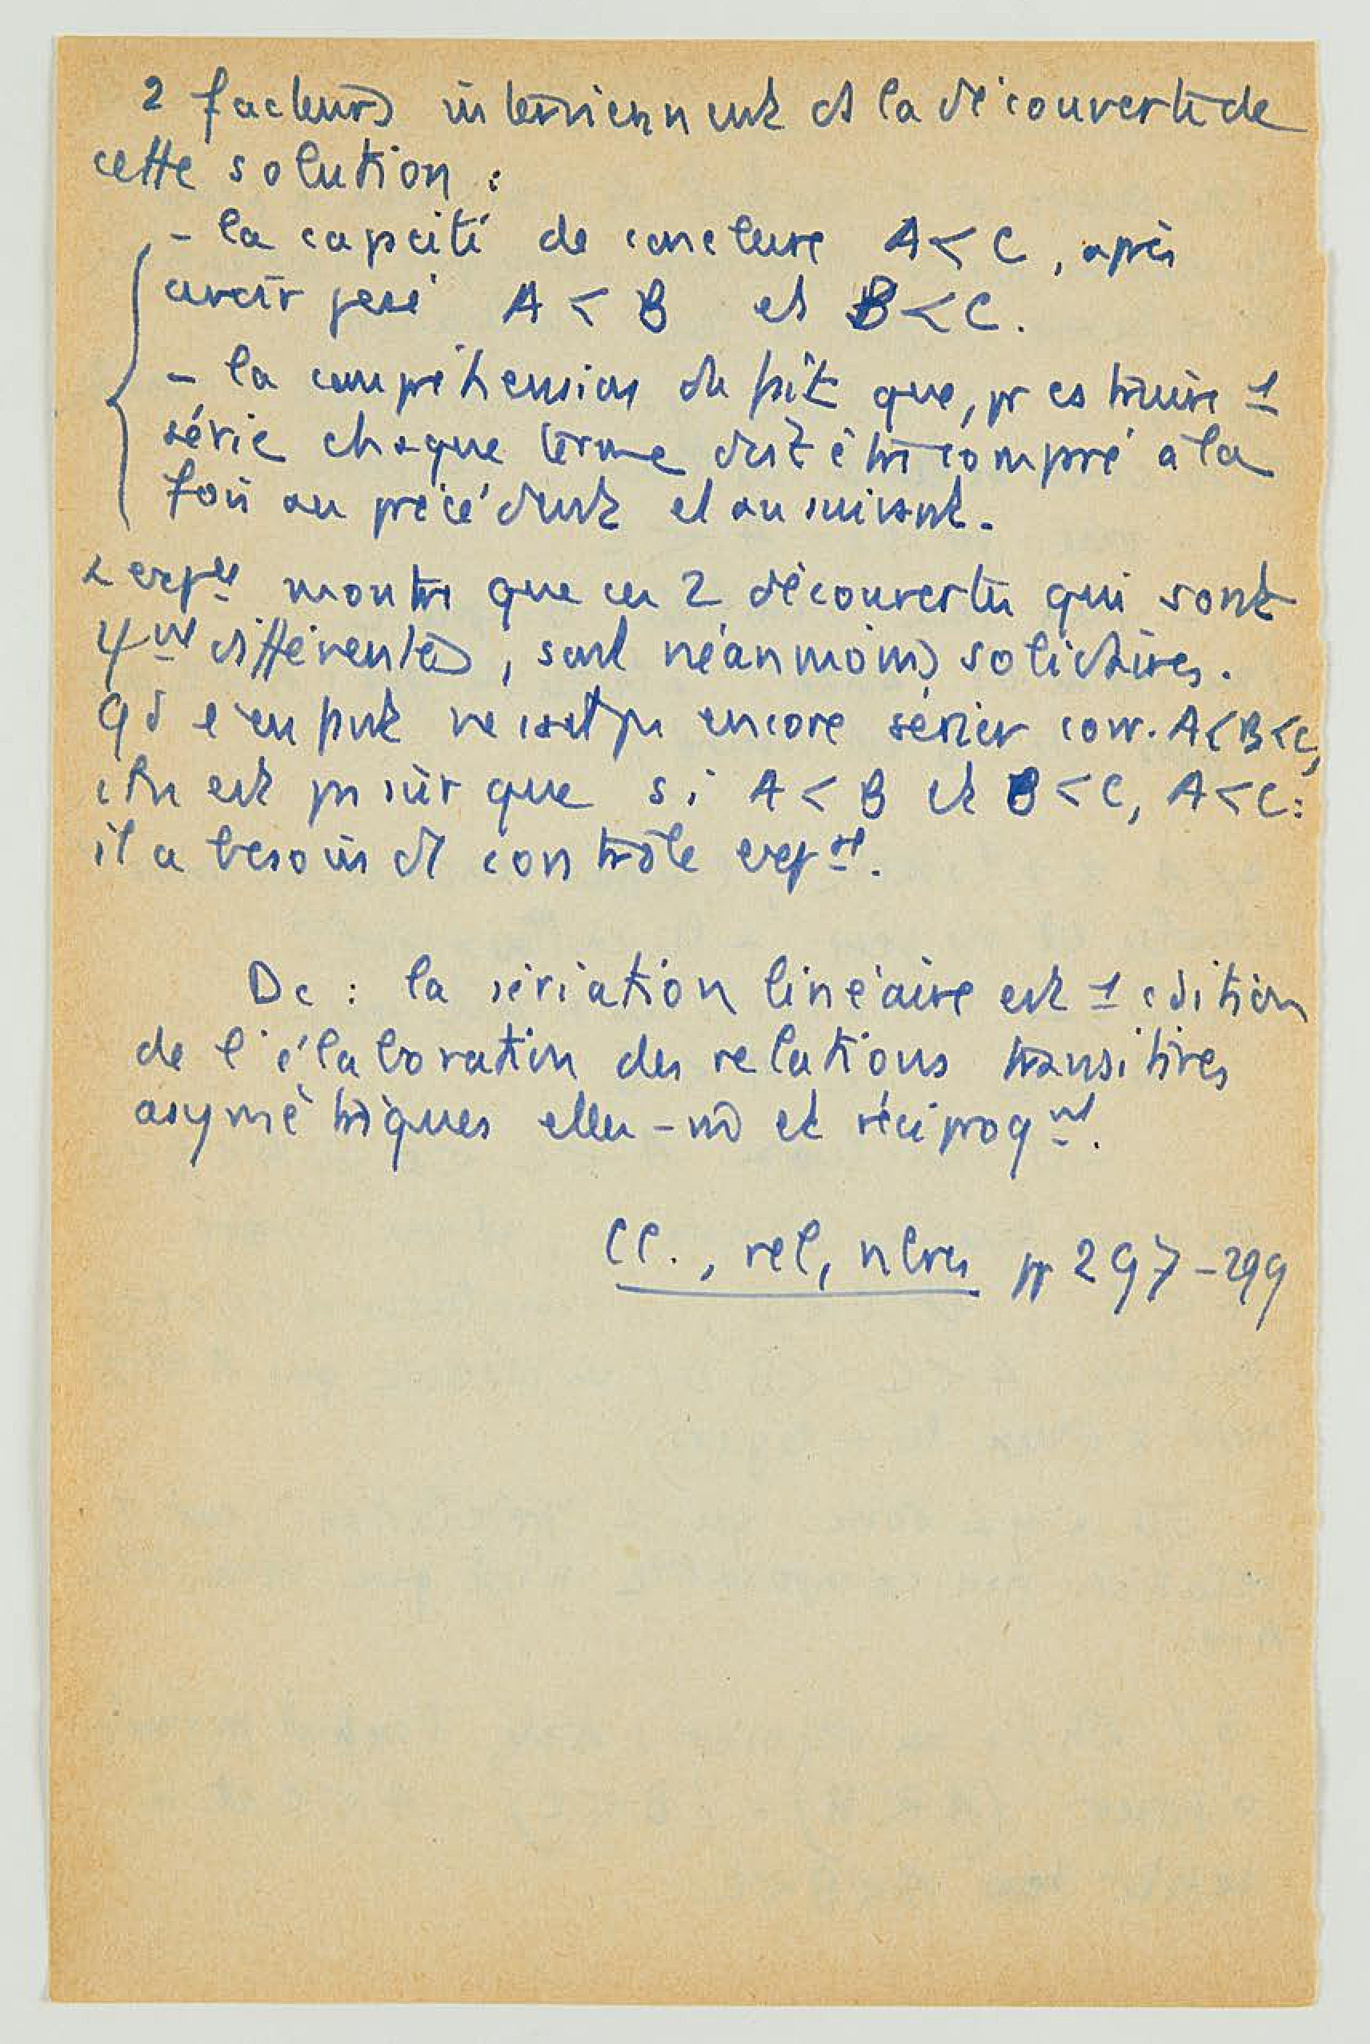 2 facteurs interviennent ds la découverte de
cette solution :
- la capacité de conclure A < C, après
avoir posé A < B et B < C.
- la compréhension du fait que, pr cstruire 1
série chaque terme doit être comparé à la
fois au précédent et au suivant.
L'expce montre que ces 2 découvertes qui sont
différentes, sont néanmoins solidaires.
Qd l'enfant ne sait pas encore sérier corr. A<B<C,
il n'est pas sûr que si A < B et B < C, A < C :
il a besoin de contrôle expal.
Dc : la sériation linéaire est 1 cdition
de l'élaboration des relations transitives
asymétriques elles-m̂ et réciproqnt.
Cl., rel, nbres pp 297-299